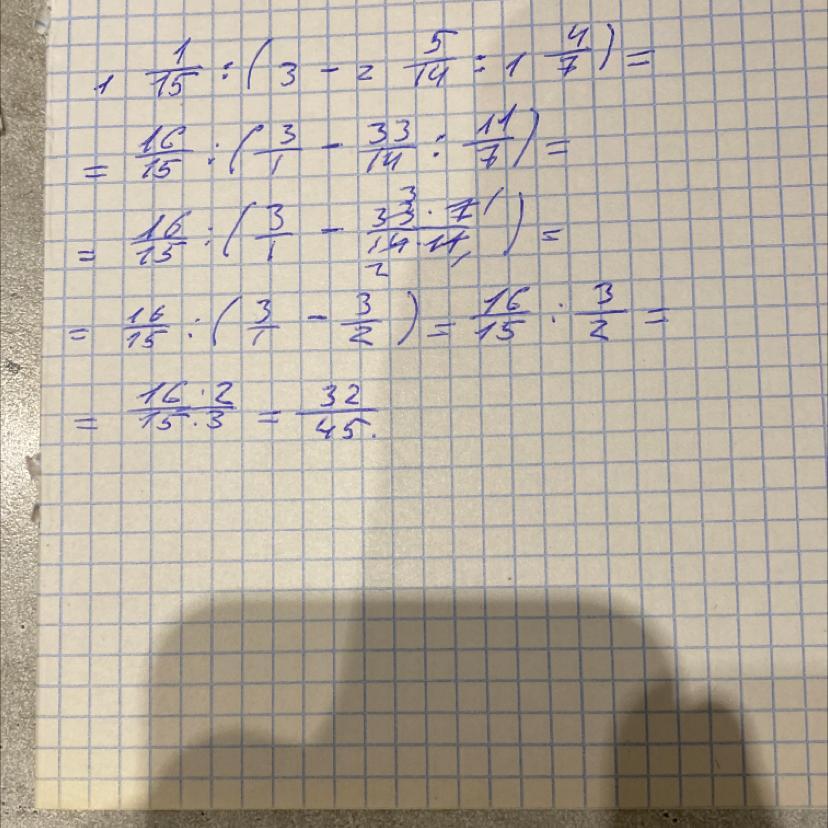 1 1/15 : (3 - 2 5/14 : 1 4/7) =
= 16/15 : (3/1 - 33/14 : 11/7) =
= 16/15 : (3/1 - 33 3 · 7 1/14 2 · 11 1) =
= 16/15 : (3/1 - 3/2) = 16/15 : 3/2 =
= 16 · 2/15 · 3 = 32/45.